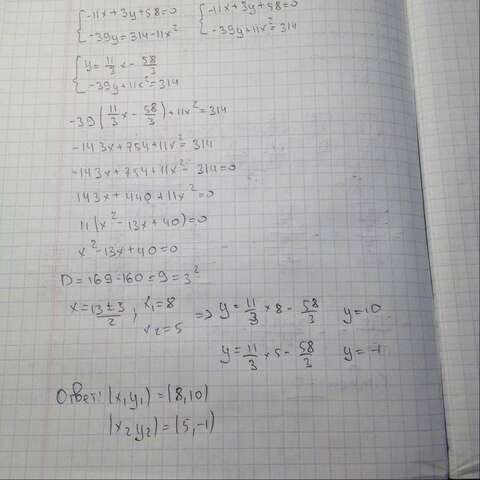 {-11x+3y+58=0 {-11x+3y+58=0
{-39y=314-11x² {-39y+11x²=314
{y=11/3 x-58/3
{-39y+11x²=314
-39(11/3 x-58/3)+11x²=314
-143x+754+11x²=314
-143x+754+11x²-314=0
143x+440+11x²=0
11(x²-13x+40)=0
x²-13x+40=0
D=169-160=9=3²
x=13±3/2; x₁=8 => y=11/3×8-58/3 y=10
x₂=5 y=11/3×5-58/3 y=-1
Ответ: (x,y₁)=(8,10)
(x₂y₂)=(5,-1)